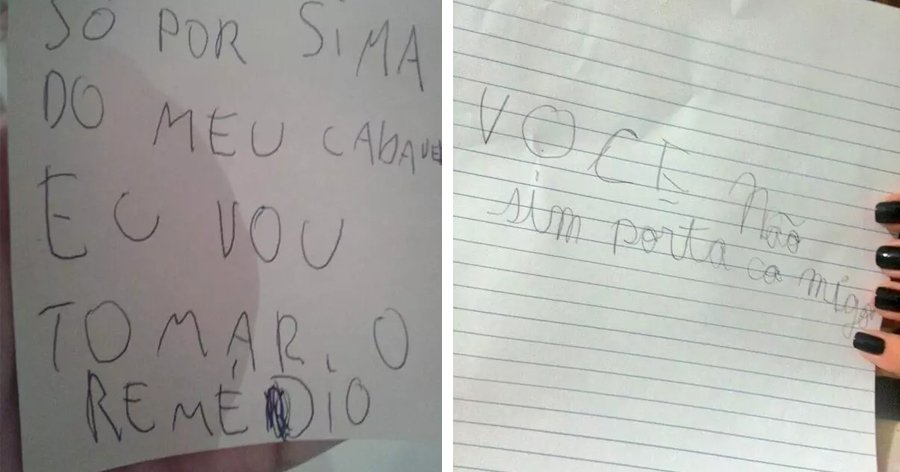 SÓ POR SIMA
DO MEU CADAVER
EU VOU
TOMAR. O
REMÉDIO
VOCÊ Não
sim porta co migo